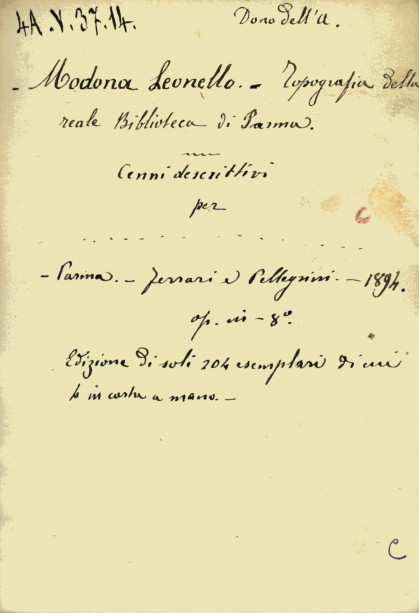 4A.V.37.14.
Dono dell'A.
- Modona Leonello. - Topografia della
reale Biblioteca di Parma.
Cenni descrittivi
per
. . . . . . . . . . . . . . .
- Parma. - Ferrari e Pellegrini. - 1894.
op. in - 8º.
Edizione di soli 204 esemplari di cui
4 in carta a mano. -
C